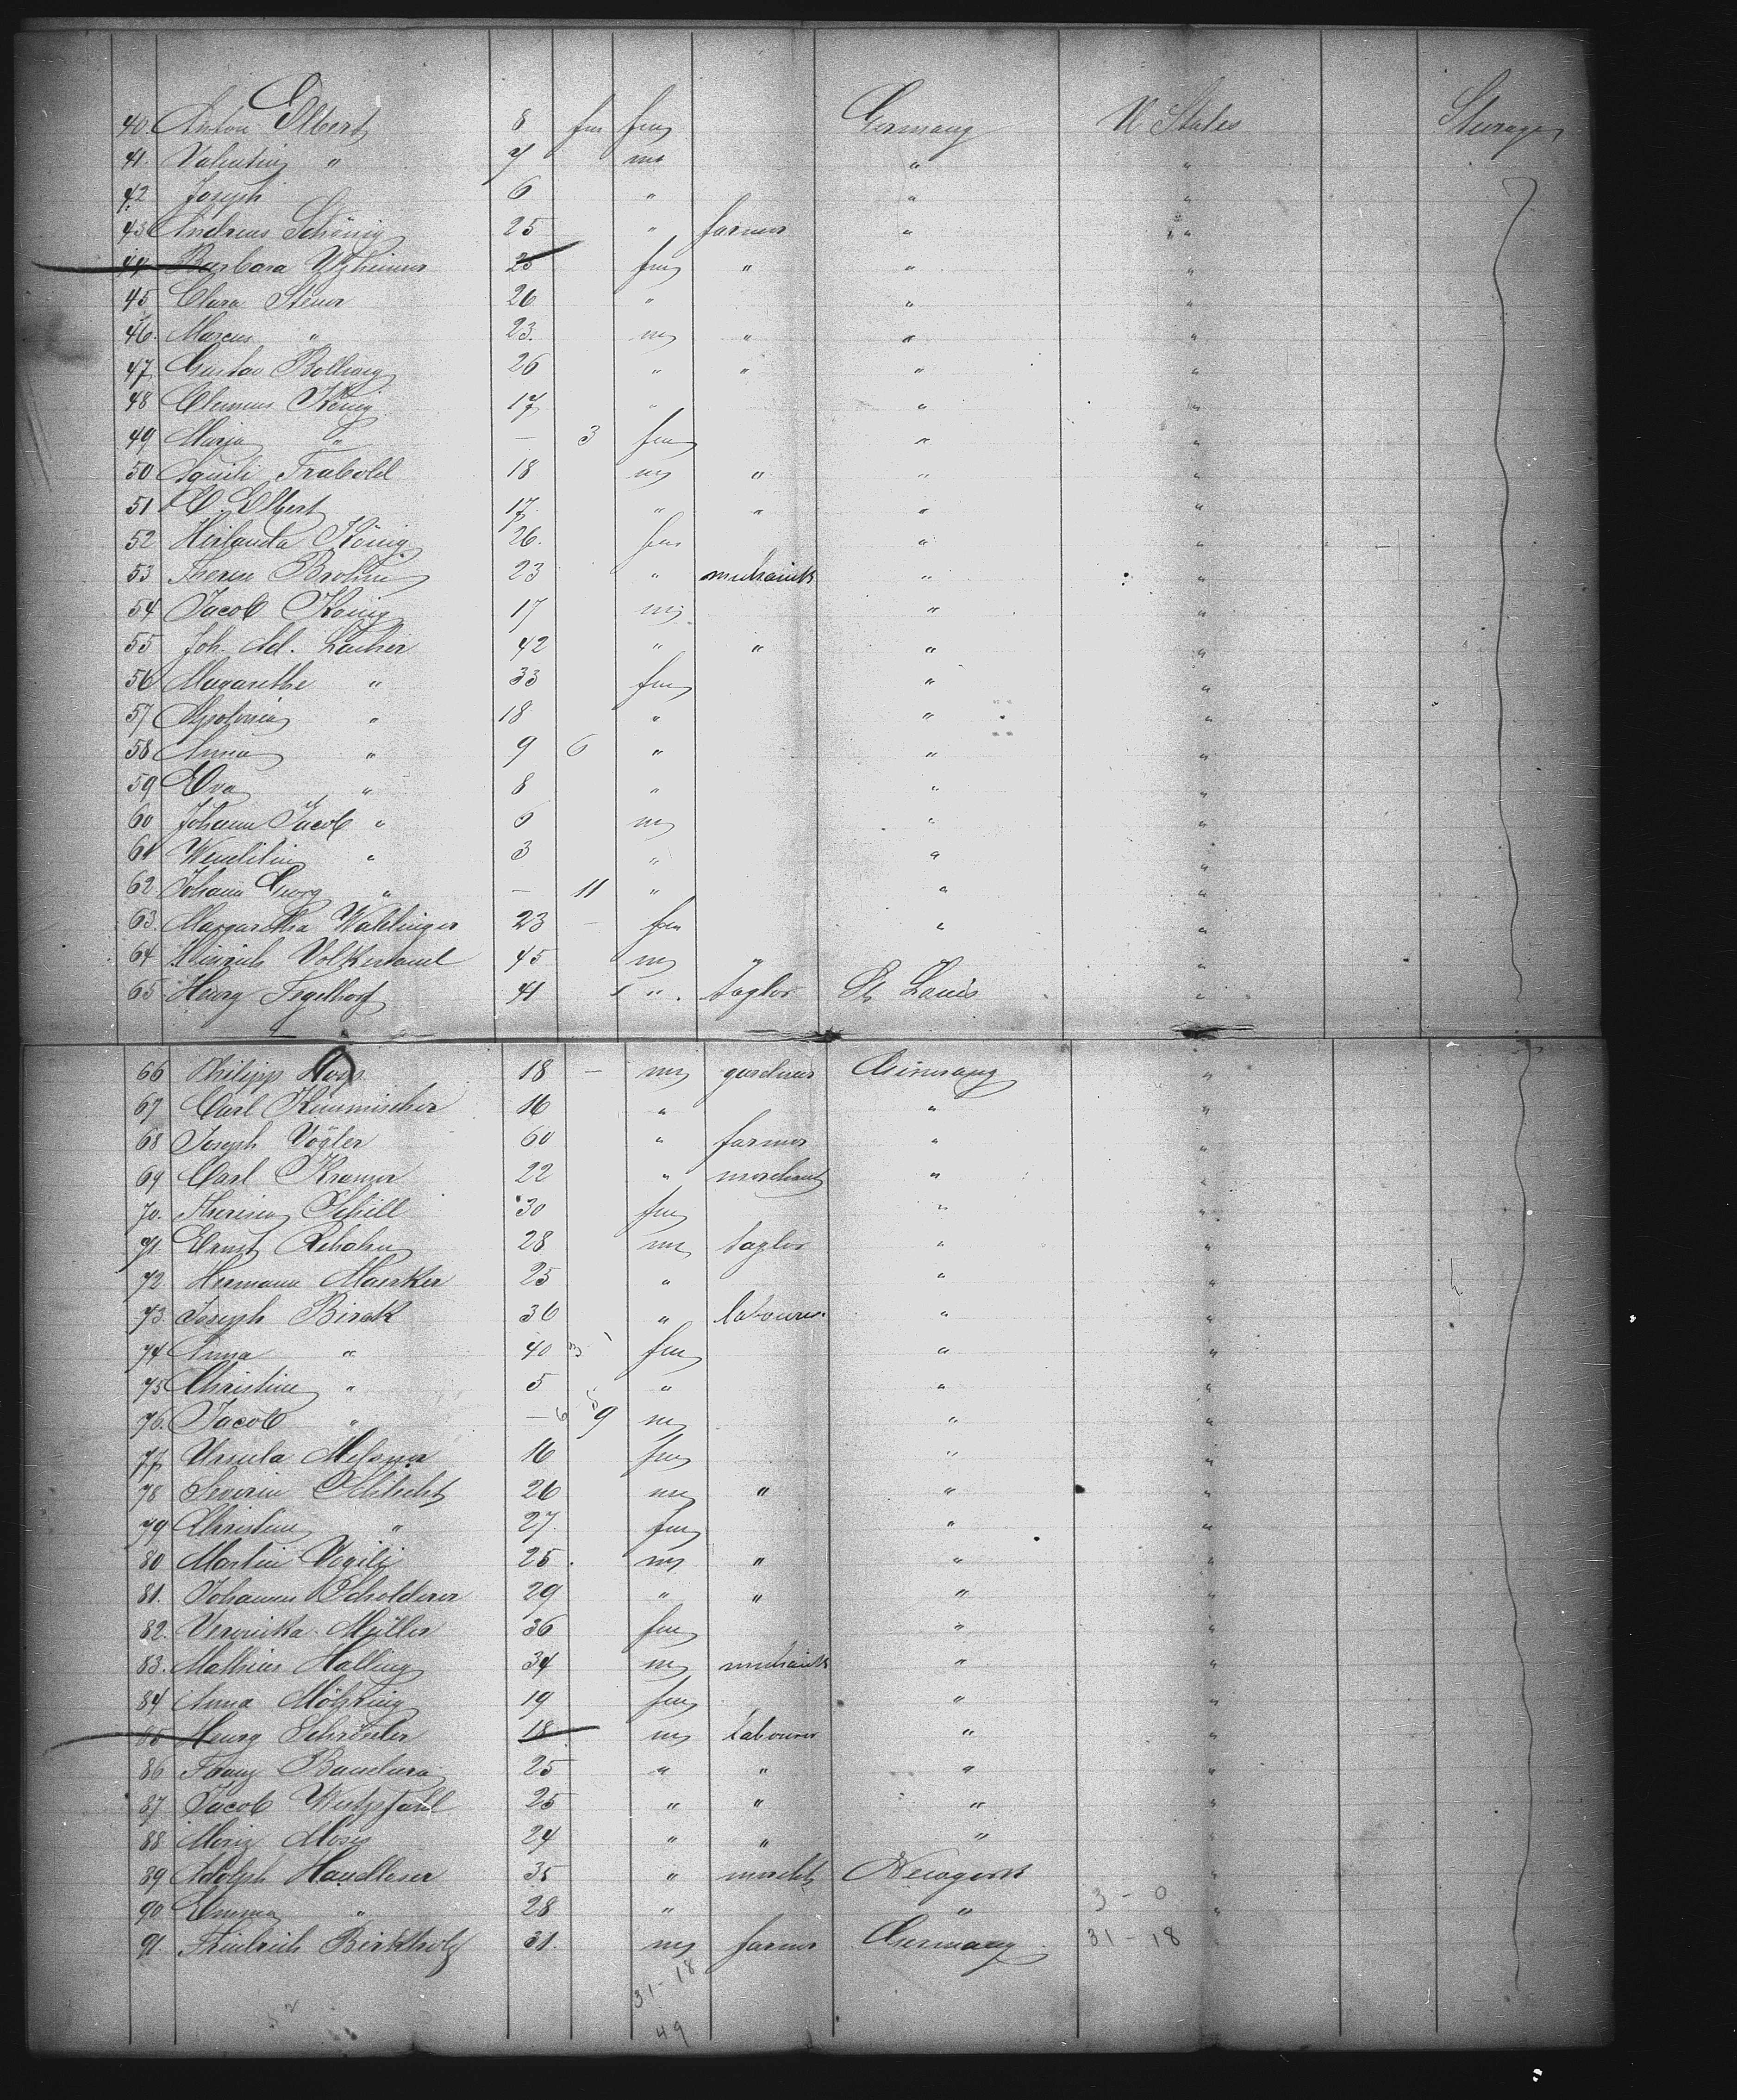 40. Anton Elbert 8 fm fm Germany U States Steerage
41. Valentin " 7 m " "
42 Joseph 6 " " "
43 Andreas Schönig 25 " farmer " "
44 Barbara 25 fm " " "
45 Clara Steur 26 " " "
46. Marcus " 23. m " " "
47 Gustav Bollweg 26 " " " "
48 Clemens König 17 " " "
49 Maria " — 3 fm " "
50 Trabold 18 m " " "
51 C. Elbert 17 " " " "
52 König 26. fm " "
53 Brohm 23 " mechanik " "
54 Jacob König 17 m " "
55 Joh. Ad. 42 " " " "
56 Magarethe " 33 fm " "
57 Apolonia " 18 " " "
58 Anna " 9 6 " " "
59 Eva " 8 " " "
60 Johann Jacob " 6 m " "
61 Wendelin " 3 " " "
62. Johann Georg " — 11 " " "
63. Margaretha 23 — fm " "
64 Heinrich 45 m " " "
65 Henry Tegelhof 41 " taylor St Louis "
66 Philipp 18 — m gardner Germany "
67 Carl 16 " " "
68 Joseph Vögler 60 " farmer " "
69 Carl Kramer 22 " merchant " "
70. Theresia Schill 30 fm " "
71. Ernst 28 m taylor " "
72. Hermann Maerker 25 " " "
73. Joseph Birak 36 " labourer " "
74 Anna " 40 3 fm " "
75 Christine " 5 " " "
76. Jacob " — 6 9 m " "
77 Ursula 16 fm " "
78 Severin Schlecht 26 m " " "
79 Christine " 27. fm " "
80 Martin 25 m " " "
81. Johannes Scholderer 29 " " " "
82. Veronika Müller 36 fm " "
83. Mathias Halling 34 m mechanik " "
84 Anna Möhring 19 fm " "
85 Henry 18 m labourer " "
86 Franz 25 " " " "
87 Jacob 25 " " " "
88 Moriz Moses 24 " " " "
89 Adolph Handloser 35 " mercht Newyork "
90. Emma " 28 " " 3 - 0 "
91. Friedrich Birkholz 31. m farmer Germany 31 - 18
31 - 18
49